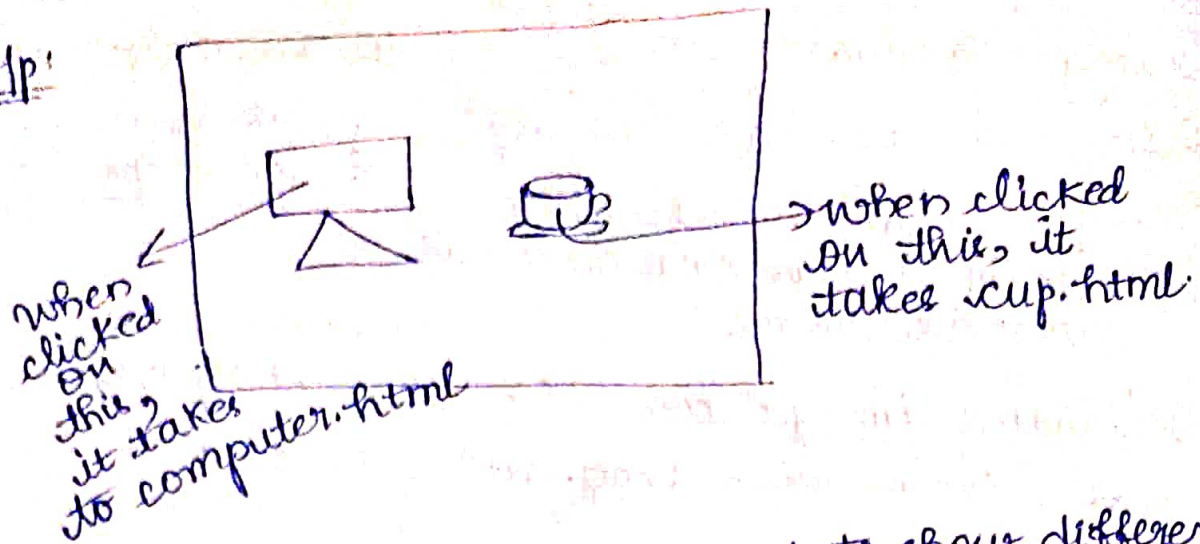 when
clicked
on
this,
it takes
to computer.html
when clicked
on this, it
takes cup.html.
to show